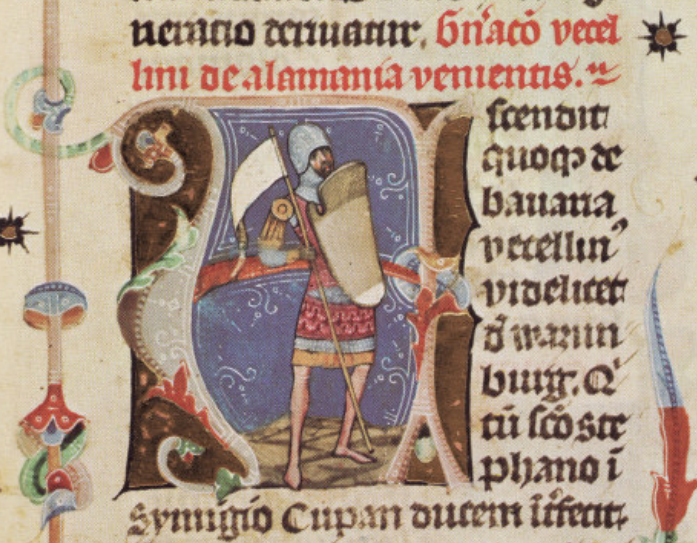 neratio deriuatur. Gn̄acō vecel
lini de alamania venientis.
Ascendit
quoqꝫ de
bauaria
vecellinꝰ
videlicet
d̄ warun
burg. Qͥ
cū scō ste
phano ī
Symigio Cupan ducem īt̄fecit.